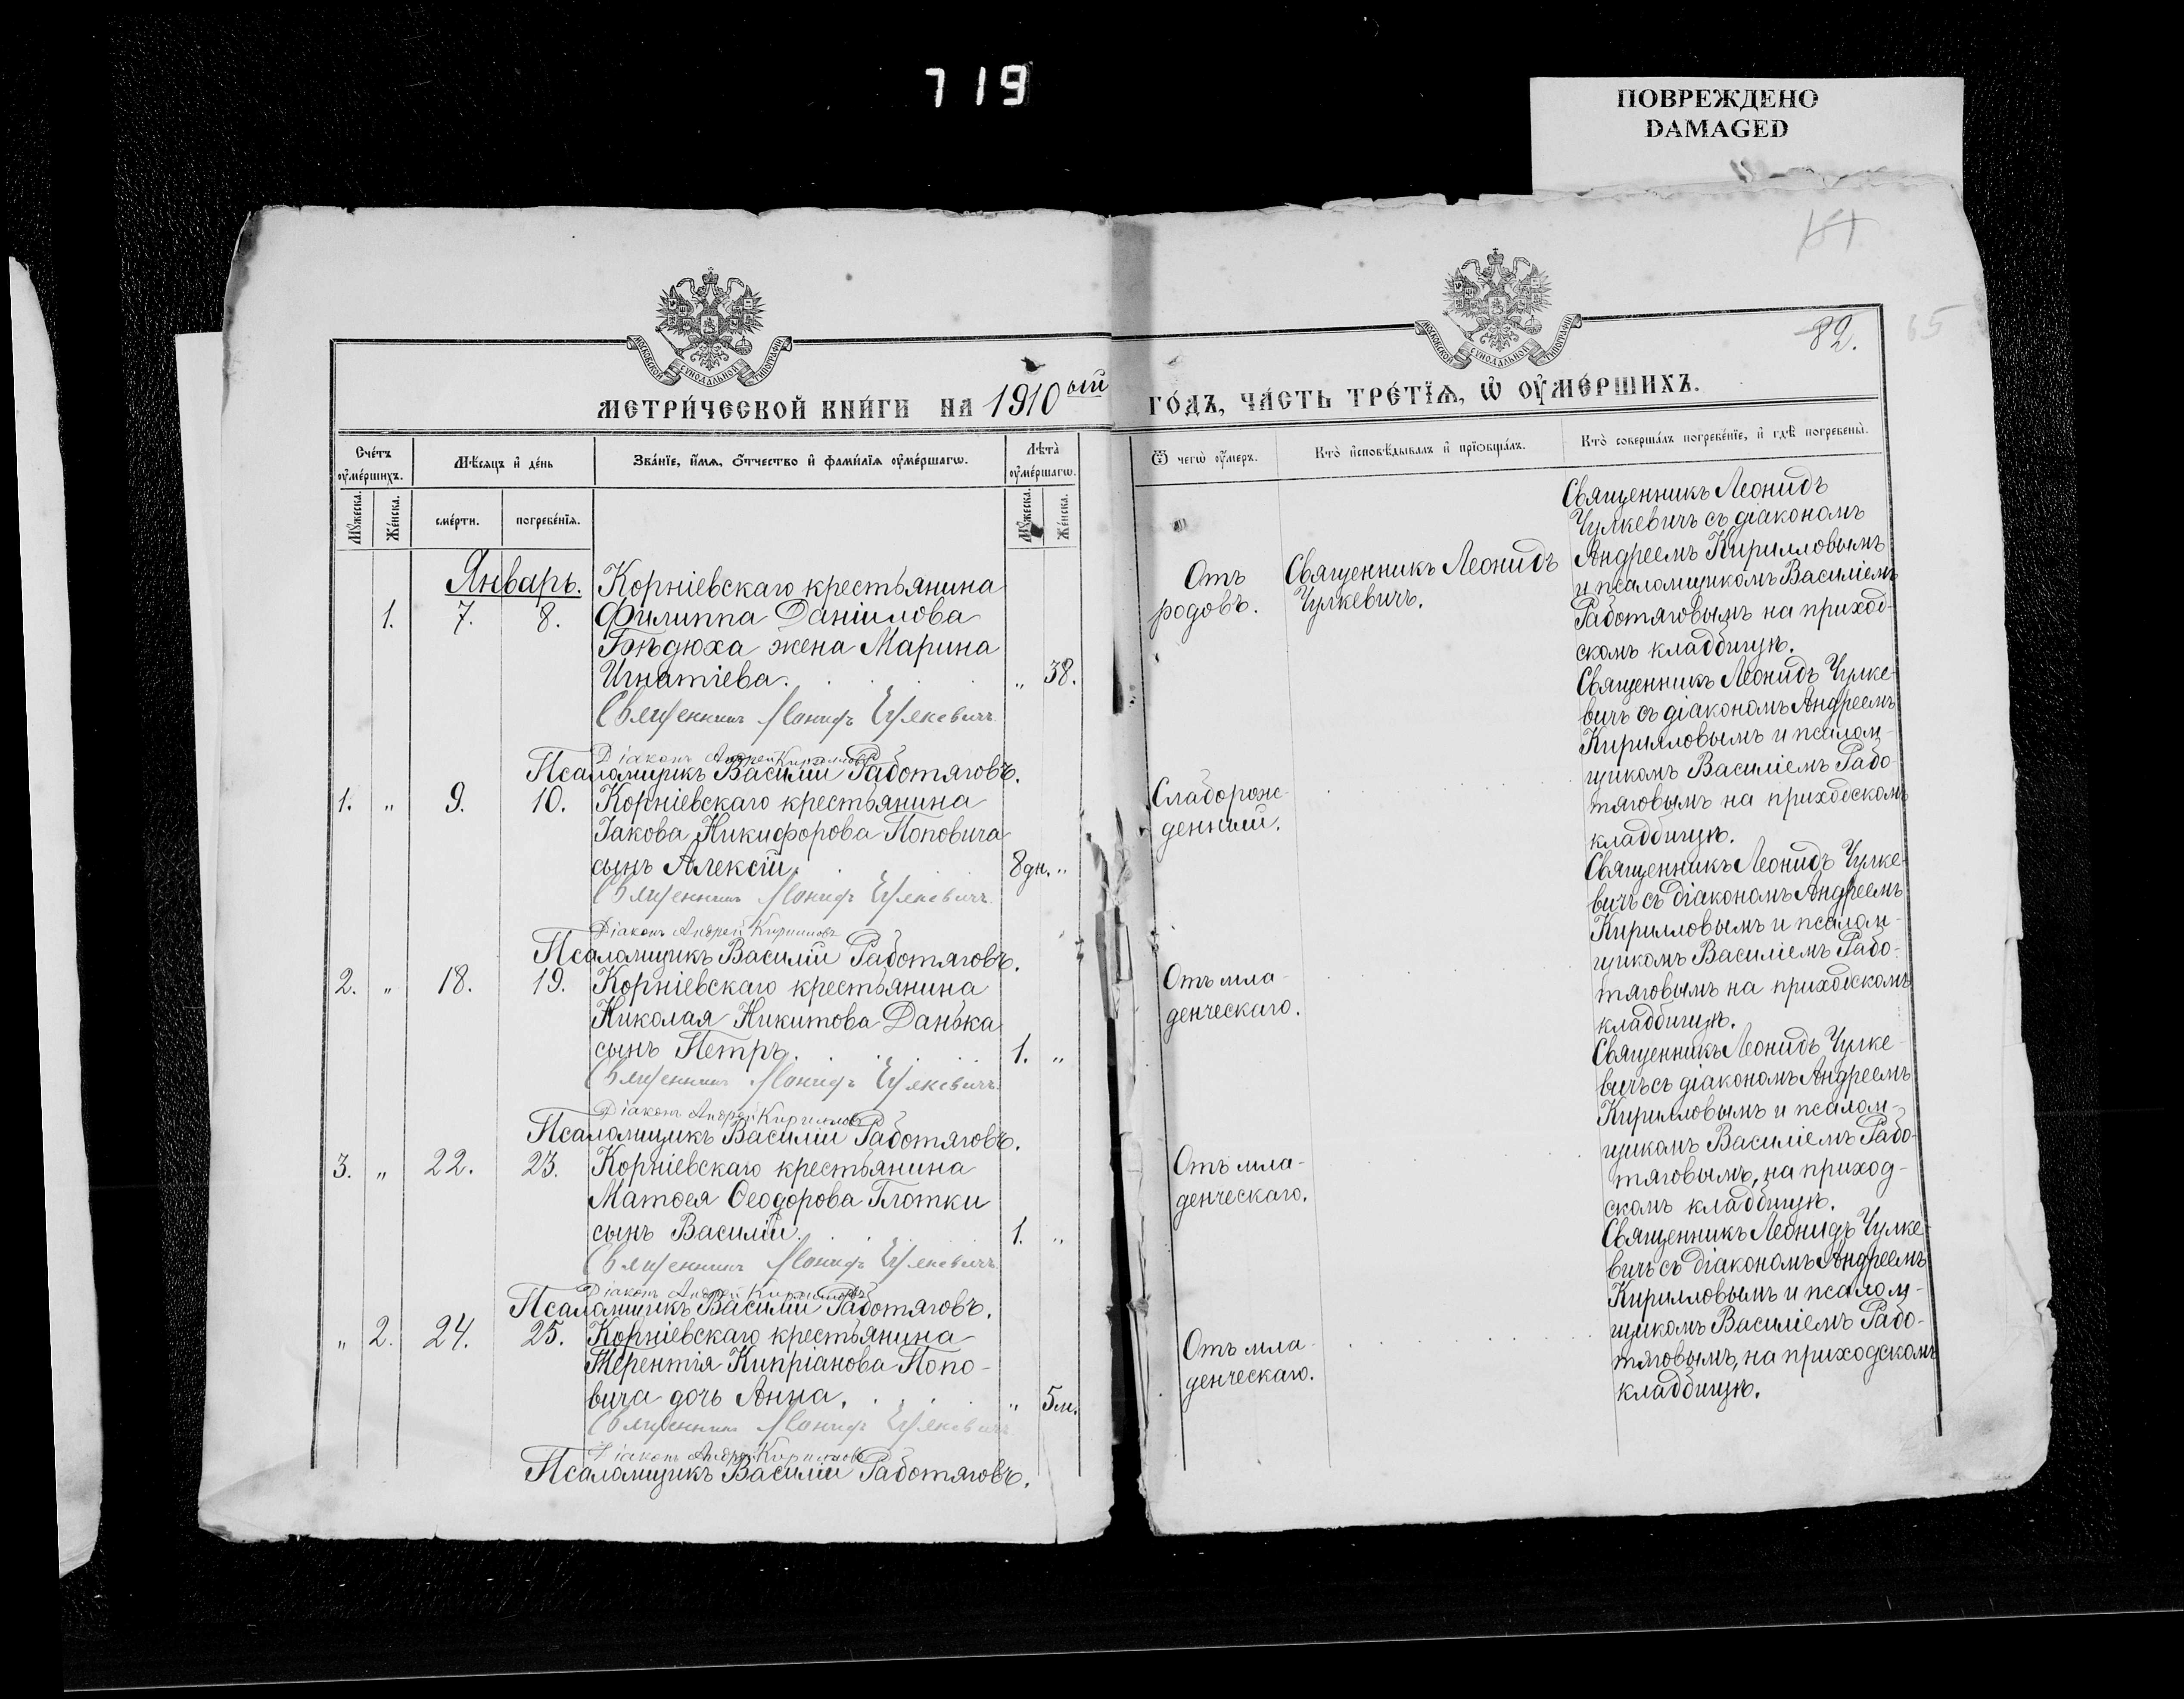 719
ПОВРЕЖДЕНО
DAMAGED
82.
65
МОСКОВСКОЙ СѴНОДАЛЬНОЙ ТИПОГРАФІИ
МОСКОВСКОЙ СѴНОДАЛЬНОЙ ТИПОГРАФІИ
МЕТРИ́ЧЕСКОЙ КНИ́ГИ НА 1910ый ГО́ДЪ, ЧА́СТЬ ТРЕ́ТЇѦ, Ѡ҆ ОУ҆МЕ́РШИХЪ.
Сче́тъ оу҆ме́ршихъ.
Мѣ́сяцъ и҆ де́нь
Зва́нїе, и҆́мѧ, ѻ҆́тчество и҆ фами́лїѧ оу҆ме́ршагѡ.
Лѣ́та оу҆ме́ршагѡ.
Мꙋ́жеска.
Же́нска.
сме́рти.
погребе́нїѧ.
Мꙋ́жеска.
Же́нска.
Ѿ чегѡ̀ оу҆́меръ.
Кто̀ и҆сповѣ́дывалъ и҆ прїѡбща́лъ.
Кто̀ соверша́лъ погребе́нїе, и҆ гдѣ̀ погребены̀.
Январь.
1. 7. 8.
Корніевскаго крестьянина
Филиппа Даніилова
Бѣдюха жена Марина
Игнатіева. „ 38.
Священникъ Леонидъ Чулкевичъ
Діаконъ Андрей Кирилловъ
Псаломщикъ Василій Работяговъ.
Отъ
родовъ.
Священникъ Леонидъ
Чулкевичъ.
Священникъ Леонидъ
Чулкевичъ съ діакономъ
Андреемъ Кирилловымъ
и псаломщикомъ Василіемъ
Работяговымъ на приход-
скомъ кладбищѣ.
1. „ 9. 10.
Корніевскаго крестьянина
Іакова Никифорова Поповича
сынъ Алексій. 8 дн. „
Священникъ Леонидъ Чулкевичъ
Діаконъ Андрей Кирилловъ
Псаломщикъ Василій Работяговъ.
Слаборож-
денный.
Священникъ Леонидъ Чулке-
вичъ съ діакономъ Андреемъ
Кирилловымъ и псалом-
щикомъ Василіемъ Рабо-
тяговымъ на приходскомъ
кладбищѣ.
2. „ 18. 19.
Корніевскаго крестьянина
Николая Никитова Данька
сынъ Петръ. 1. „
Священникъ Леонидъ Чулкевичъ
Діаконъ Андрей Кирилловъ
Псаломщикъ Василій Работяговъ.
Отъ мла-
денческаго.
Священникъ Леонидъ Чулке-
вичъ съ діакономъ Андреемъ
Кирилловымъ и псалом-
щикомъ Василіемъ Рабо-
тяговымъ на приходскомъ
кладбищѣ.
3. „ 22. 23.
Корніевскаго крестьянина
Матѳея Ѳеодорова Глотки
сынъ Василій. 1. „
Священникъ Леонидъ Чулкевичъ
Діаконъ Андрей Кирилловъ
Псаломщикъ Василій Работяговъ.
Отъ мла-
денческаго.
Священникъ Леонидъ Чулке-
вичъ съ діакономъ Андреемъ
Кирилловымъ и псалом-
щикомъ Василіемъ Рабо-
тяговымъ, на приход-
скомъ кладбищѣ.
„ 2. 24. 25.
Корніевскаго крестьянина
Терентія Кипріанова Попо-
вича дочь Анна. „ 5 м.
Священникъ Леонидъ Чулкевичъ
Діаконъ Андрей Кирилловъ
Псаломщикъ Василій Работяговъ.
Отъ мла-
денческаго.
Священникъ Леонидъ Чулке-
вичъ съ діакономъ Андреемъ
Кирилловымъ и псалом-
щикомъ Василіемъ Рабо-
тяговымъ, на приходскомъ
кладбищѣ.